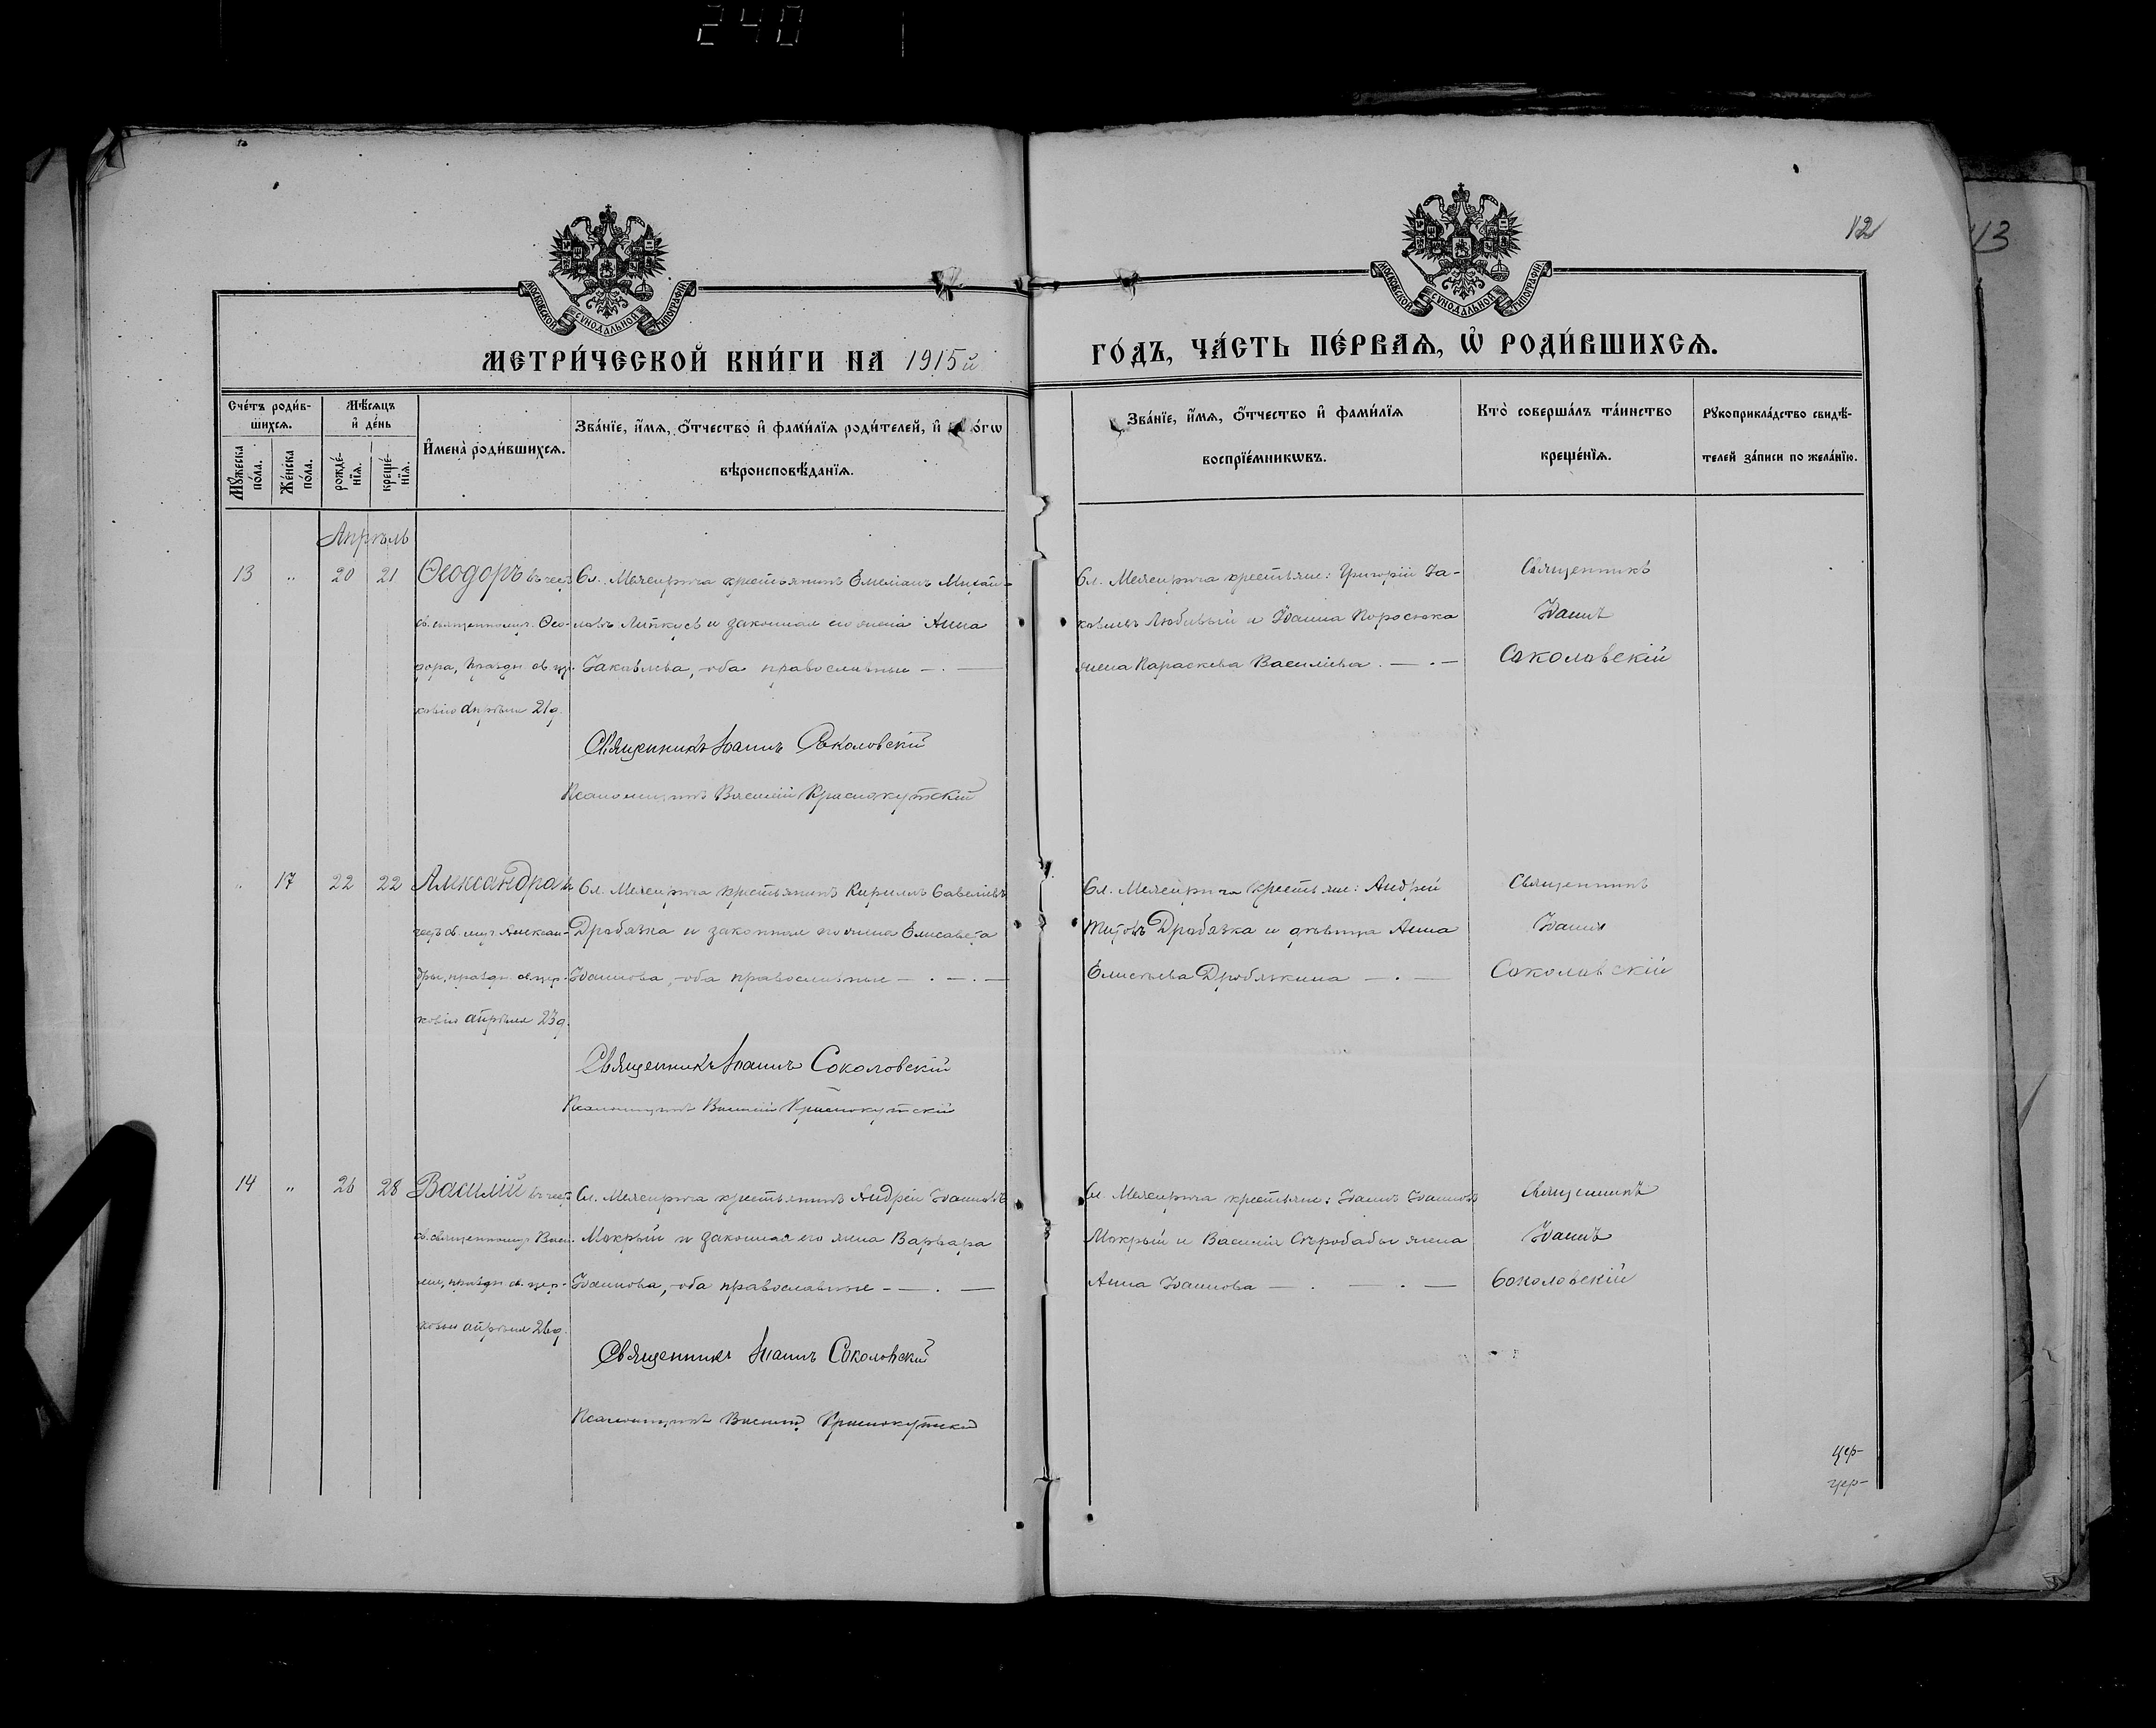 240
12
43
МОСКОВСКОЙ СѴНОДАЛЬНОЙ ТИПОГРАФІИ
МОСКОВСКОЙ СѴНОДАЛЬНОЙ ТИПОГРАФІИ
МЕТРИ́ЧЕСКОЙ КНИ́ГИ НА 1915й
ГО́ДЪ, ЧА́СТЬ ПЕ́РВАѦ, Ѡ҆ РОДИ́ВШИХСѦ.
Сче́тъ роди́в-
шихсѧ.
Мꙋ́жеска
по́ла.
Же́нска
по́ла.
Мѣ́сѧцъ
и҆ де́нь
рожде́-
нїѧ.
креще́-
нїѧ.
И҆мена̀ роди́вшихсѧ.
Зва́нїе, и҆́мѧ, ѻ҆́тчество и҆ фамі́лїѧ роди́телей, и҆
вѣроисповѣ́данїѧ.
Зва́нїе, и҆́мѧ, ѻ҆́тчество и҆ фамі́лїѧ
воспрїе́мникѡвъ.
Кто̀ соверша́лъ та́инство
креще́нїѧ.
Рꙋкоприкла́дство свидѣ́-
телей за́писи по жела́нїю.
Апрѣль
13 " 20 21
Ѳеодоръ въ чест
св. священномуч. Ѳео-
дора, праздн. св. цер-
ковію апрѣля 21 д.
Сл. Межирича крестьянинъ Емеліанъ Михаи-
ловъ и законная его жена Анна
Іаковлева, оба православные
Священникъ Іоаннъ Соколовскій
Псаломщикъ Василій Краснокутскій
Сл. Межирича крестьяне: Григорій Іа-
ковлевъ Любивый и Іоанна Поросюка
жена Параскева Василіева
Священникъ
Іоаннъ
Соколовскій
" 17 22 22
Александра въ
честь св. муч. Алексан-
дры, праздн. св. цер-
ковію апрѣля 23 д.
Сл. Межирича крестьянинъ Кириллъ Савеліевъ
Дробязка и законная его жена Елисавета
Іоаннова, оба православные
Священникъ Іоаннъ Соколовскій
Псаломщикъ Василій Краснокутскій
Сл. Межирича крестьяне: Андрей
Титовъ Дробязка и дѣвица Анна
Елисѣева Дробязкина
Священникъ
Іоаннъ
Соколовскій
14 " 26 28
Василій въ чест
св. священномуч. Васи-
лія, праздн. св. цер-
ковію апрѣля 26 д.
Сл. Межирича крестьянинъ Андрей Іоанновъ
Мокрый и законная его жена Варвара
Іоаннова, оба православные
Священникъ Іоаннъ Соколовскій
Псаломщикъ Василій Краснокутскій
Сл. Межирича крестьяне: Іоаннъ Іоанновъ
Мокрый и Василія Сѣробабы жена
Анна Іоаннова
Священникъ
Іоаннъ
Соколовскій
цер-
цер-